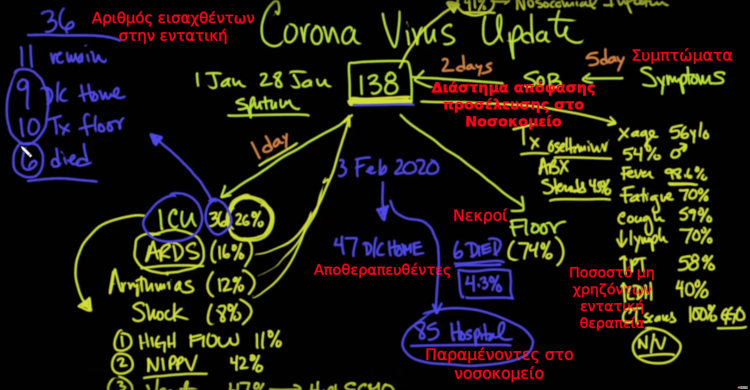 36 Αριθμός εισαχθέντων
στην εντατική
11 remain
9 D/c Home
10 Tx floor
6 died
Corona Virus Update
41%
1 Jan 28 Jan
138
2 days
SOB
5day
Συμπτώματα
Symptoms
Διάστημα απόφασης
προσέλευσης στο
Νοσοκομείο
1 day
3 Feb 2020
ICU 36 26%
ARDS (16%)
Arrythmias (12%)
Shock (8%)
① HIGH FLOW 11%
② NIPPV 42%
③ 47%
47 D/C HOME
Αποθεραπευθέντες
6 DIED
4.3%
85 Hospital
Παραμένοντες στο
νοσοκομείο
Νεκροί
Floor
(74%)
Tx
ABX
Steroids 45%
X age 56 y/o
54% ♂
Fever 98.6%
Fatigue 70%
cough 59%
↓lymph 70%
↑PT 58%
↑LDH 40%
CT scans 100% GGO
N/V
Ποσοστό μη
χρηζόντων
εντατική
θεραπεία